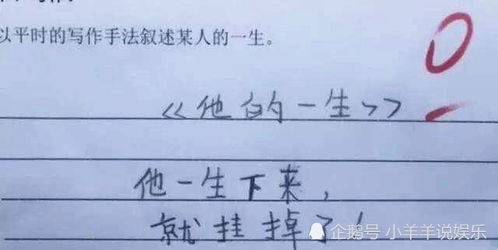 以平时的写作手法叙述某人的一生。
0
《他的一生》
他一生下来，
就挂掉了！
企鹅号 小羊羊说娱乐